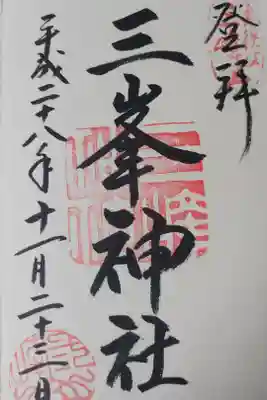 登拜
三峯神社
平成二十八年十一月二十三日